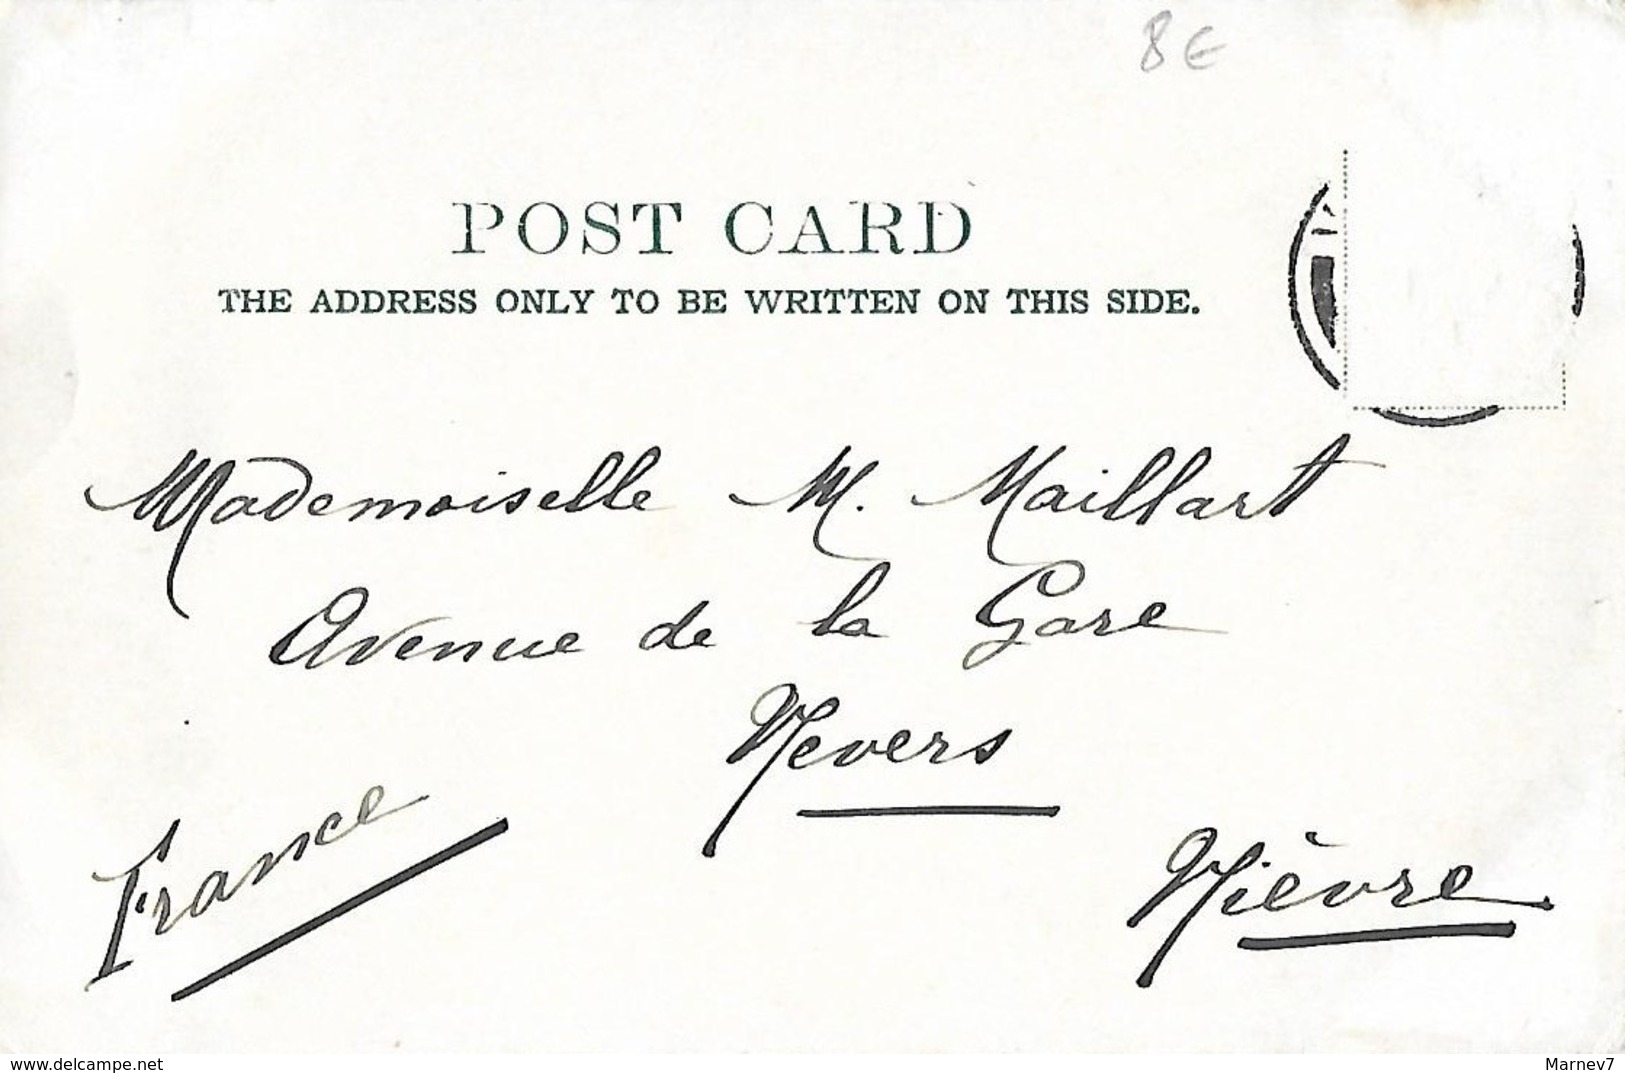 8€
POST CARD
THE ADDRESS ONLY TO BE WRITTEN ON THIS SIDE.
Mademoiselle M. Maillart
Avenue de la Gare
Nevers
France
Nièvre
www.delcampe.net
Marnev7